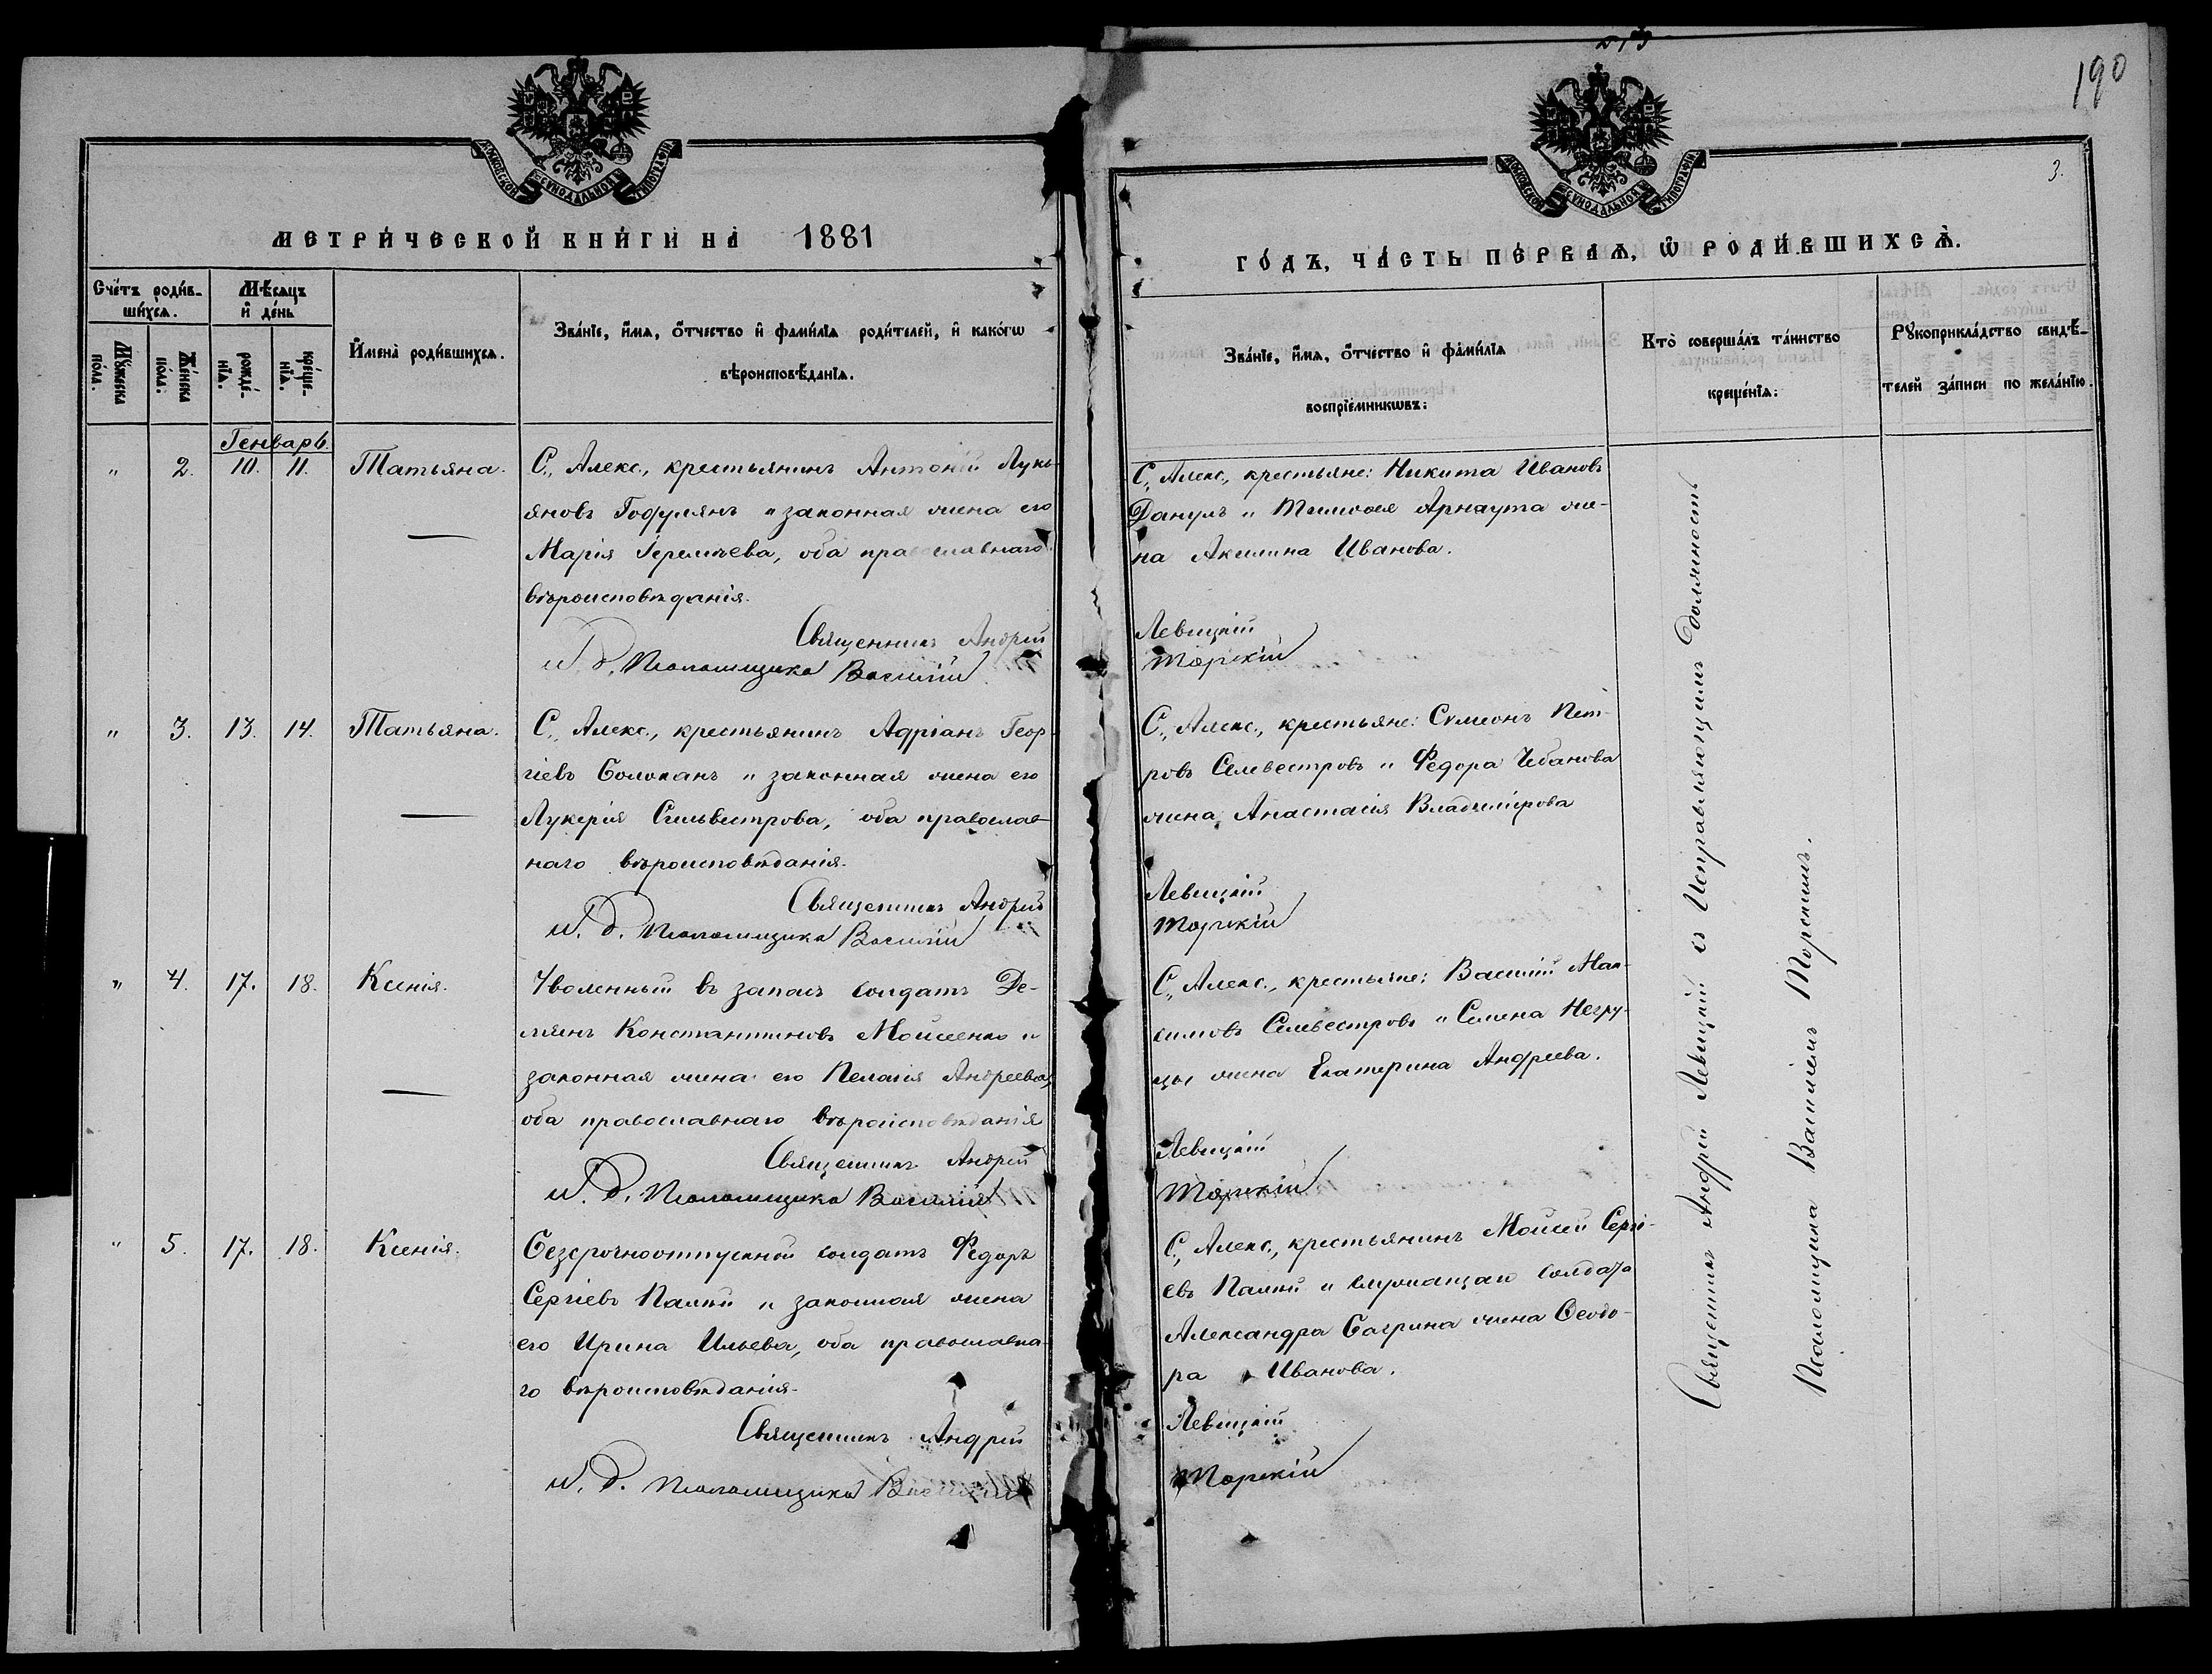 190
3.
МОСКОВСКОЙ СѴНОДАЛЬНОЙ ТИПОГРАФІИ
МОСКОВСКОЙ СѴНОДАЛЬНОЙ ТИПОГРАФІИ
МЕТРИ́ЧЕСКОЙ КНИ́ГИ НА̀ 1881
ГО́ДЪ, ЧА́СТЬ ПЕ́РВАѦ, Ѿ РОДИ́ВШИХСѦ.
Сче́тъ роди́в-
ши́хсѧ.
Мꙋ́жеска по́ла.
Же́нска по́ла.
Мѣ́сѧцъ
и҆ де́нь
рожде́-нїѧ.
креще́-нїѧ.
И҆мена̀ роди́вшихсѧ.
Зва́нїе, и҆́мѧ, ѻ҆́тчество и҆ фами́лїѧ роди́телей, и҆ како́гѡ
вѣроисповѣ́данїѧ.
Зва́нїе, и҆́мѧ, ѻ҆́тчество и҆ фами́лїѧ
воспрїе́мникѡвъ:
Кто̀ соверша́лъ та́инство
креще́нїѧ:
Рꙋкоприкла́дство свидѣ́-
телей за́писи по жела́нїю.
Генварь.
" 2. 10. 11. Татьяна.
С. Алекс., крестьянинъ Антоній Лукь-
яновъ Гофулянъ и законная жена его
Марія Іеремѣева, оба православнаго
вѣроисповѣданія.
Священникъ Андрей
И. д. Псаломщика Василій
С. Алекс., крестьяне: Никита Ивановъ
Данулъ и Тимофея Арнаута же-
на Акилина Иванова.
Левицкій
Торскій
" 3. 13. 14. Татьяна.
С. Алекс., крестьянинъ Адріанъ Геор-
гіевъ Болоканъ и законная жена его
Лукерія Сильвестрова, оба православ-
наго вѣроисповѣданія.
Священникъ Андрей
И. д. Псаломщика Василій
С. Алекс., крестьяне: Сѵмеонъ Пет-
ровъ Селевестровъ и Федора Чебанова
жена Анастасія Владимірова
Левицкій
Торскій
" 4. 17. 18. Ксенія.
Уволенный въ запасъ солдатъ Де-
мянъ Константиновъ Моисеенко и
законная жена его Пелагія Андреева,
оба православнаго вѣроисповѣданія
Священникъ Андрей
И. д. Псаломщика Василій
С. Алекс., крестьяне: Василій Мак-
симовъ Селевестровъ и Семена Негру-
цы жена Екатерина Андреева.
Левицкій
Торскій
" 5. 17. 18. Ксенія.
Безсрочноотпускной солдатъ Федоръ
Сергіевъ Палий и законная жена
его Ирина Ильева, оба православна-
го вѣроисповѣданія.
Священникъ Андрей
И. д. Псаломщика Василій
С. Алекс., крестьянинъ Моисей Сергі-
евъ Палий и служащаго солдата
Александра Багрина жена Ѳеодо-
ра Иванова.
Левицкій
Торскій
Священникъ Андрей Левицкій съ Исправляющимъ Должность
Псаломщика Василіемъ Торскимъ.